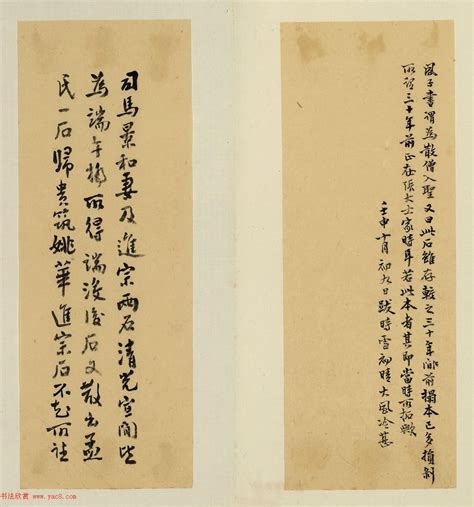 子書謂為散僧入聖又曰此石雖存較之三十年前搨本已多損剝
所謂三十年前正在張大士家時耳若此本者其即當時所拓歟
壬申十月初九日跋時雪初晴大風冷甚
司馬景和妻及進宗两石清光宣間皆
為端午橋所得端没後石又散出孟
氏一石歸貴筑姚華進宗石不知所往
书法欣赏 www.yac8.com